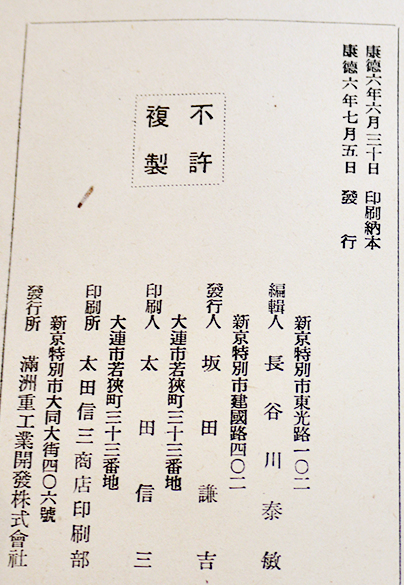 康德六年六月三十日 印刷納本
康德六年七月五日 發行
不許
複製
新京特別市東光路一〇二
編輯人 長谷川泰敏
新京特別市建國路四〇二
發行人 坂田謙吉
大連市若狹町三十三番地
印刷人 太田信三
大連市若狹町三十三番地
印刷所 太田信三商店印刷部
新京特別市大同大街四〇六號
發行所 滿洲重工業開發株式會社